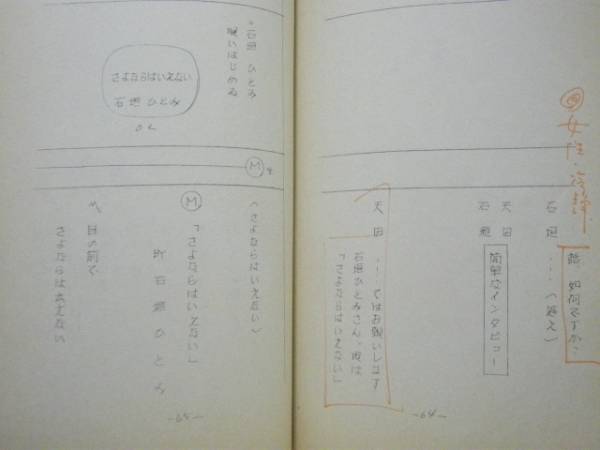 話、如何ですか。
石垣 …（答え）
天田
石垣
簡単なインタビュー
天田 …ではお願いします
石垣ひとみさん、曲は
「さよならはいえない」
-64-
・石垣 ひとみ
唄いはじめる
さよならはいえない
石垣 ひとみ
O L
M
(さよならはいえない)
M
「さよならはいえない」
石垣ひとみ
目の前で
さよならは言えない
-65-